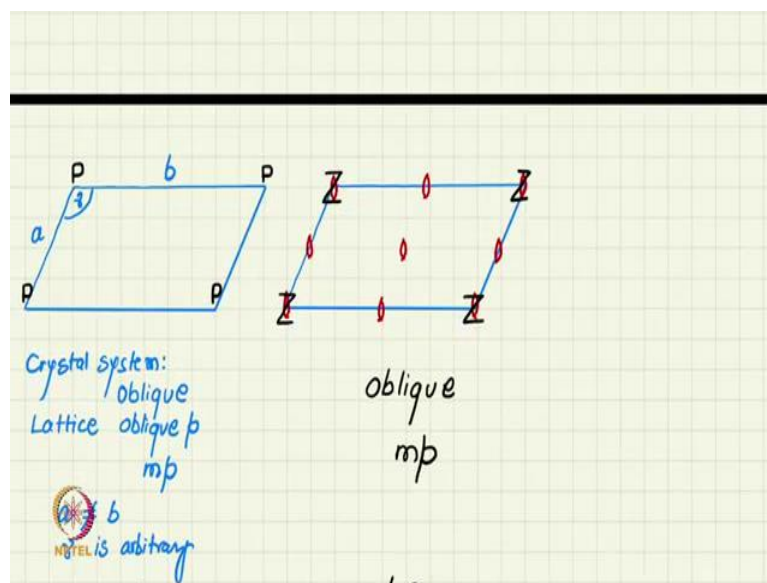 P b P
a γ
P P
Z Z
Z Z
Crystal system:
Oblique
Lattice oblique p
mp
a ≠ b
γ is arbitrary
NPTEL
oblique
mp